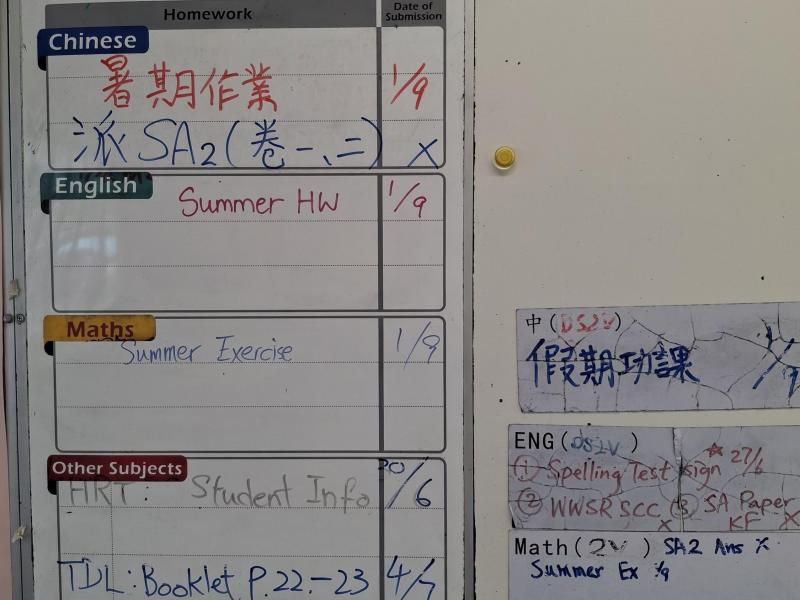 Homework Date of Submission
Chinese
暑期作業 1/9
派 SA2(卷一、二) X
English
Summer HW 1/9
Maths
Summer Exercise 1/9
Other Subjects
HRT: Student Info 30/6
TDL: Booklet P.22-23 4/7
中(DS2V)
假期功課 1/9
ENG(DS2V)
① Spelling Test sign ☆ 27/6
② WWSR SCC X ③ SA Paper X
KF
Math(2V) SA2 Ans X
Summer Ex 1/9